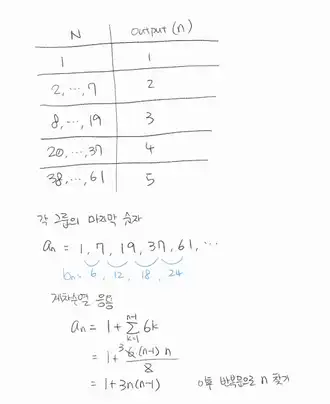 N output (n)
1 1
2, ⋯, 7 2
8, ⋯, 19 3
20, ⋯, 37 4
38, ⋯, 61 5
각 그룹의 마지막 숫자
aₙ = 1, 7, 19, 37, 61, ⋯
bₙ = 6, 12, 18, 24
계차수열 응용
aₙ = 1 + ∑_{k=1}^{n-1} 6k
= 1 + 3 6 (n-1) n / 2
= 1 + 3n(n-1) 이후 반복문으로 n 찾기